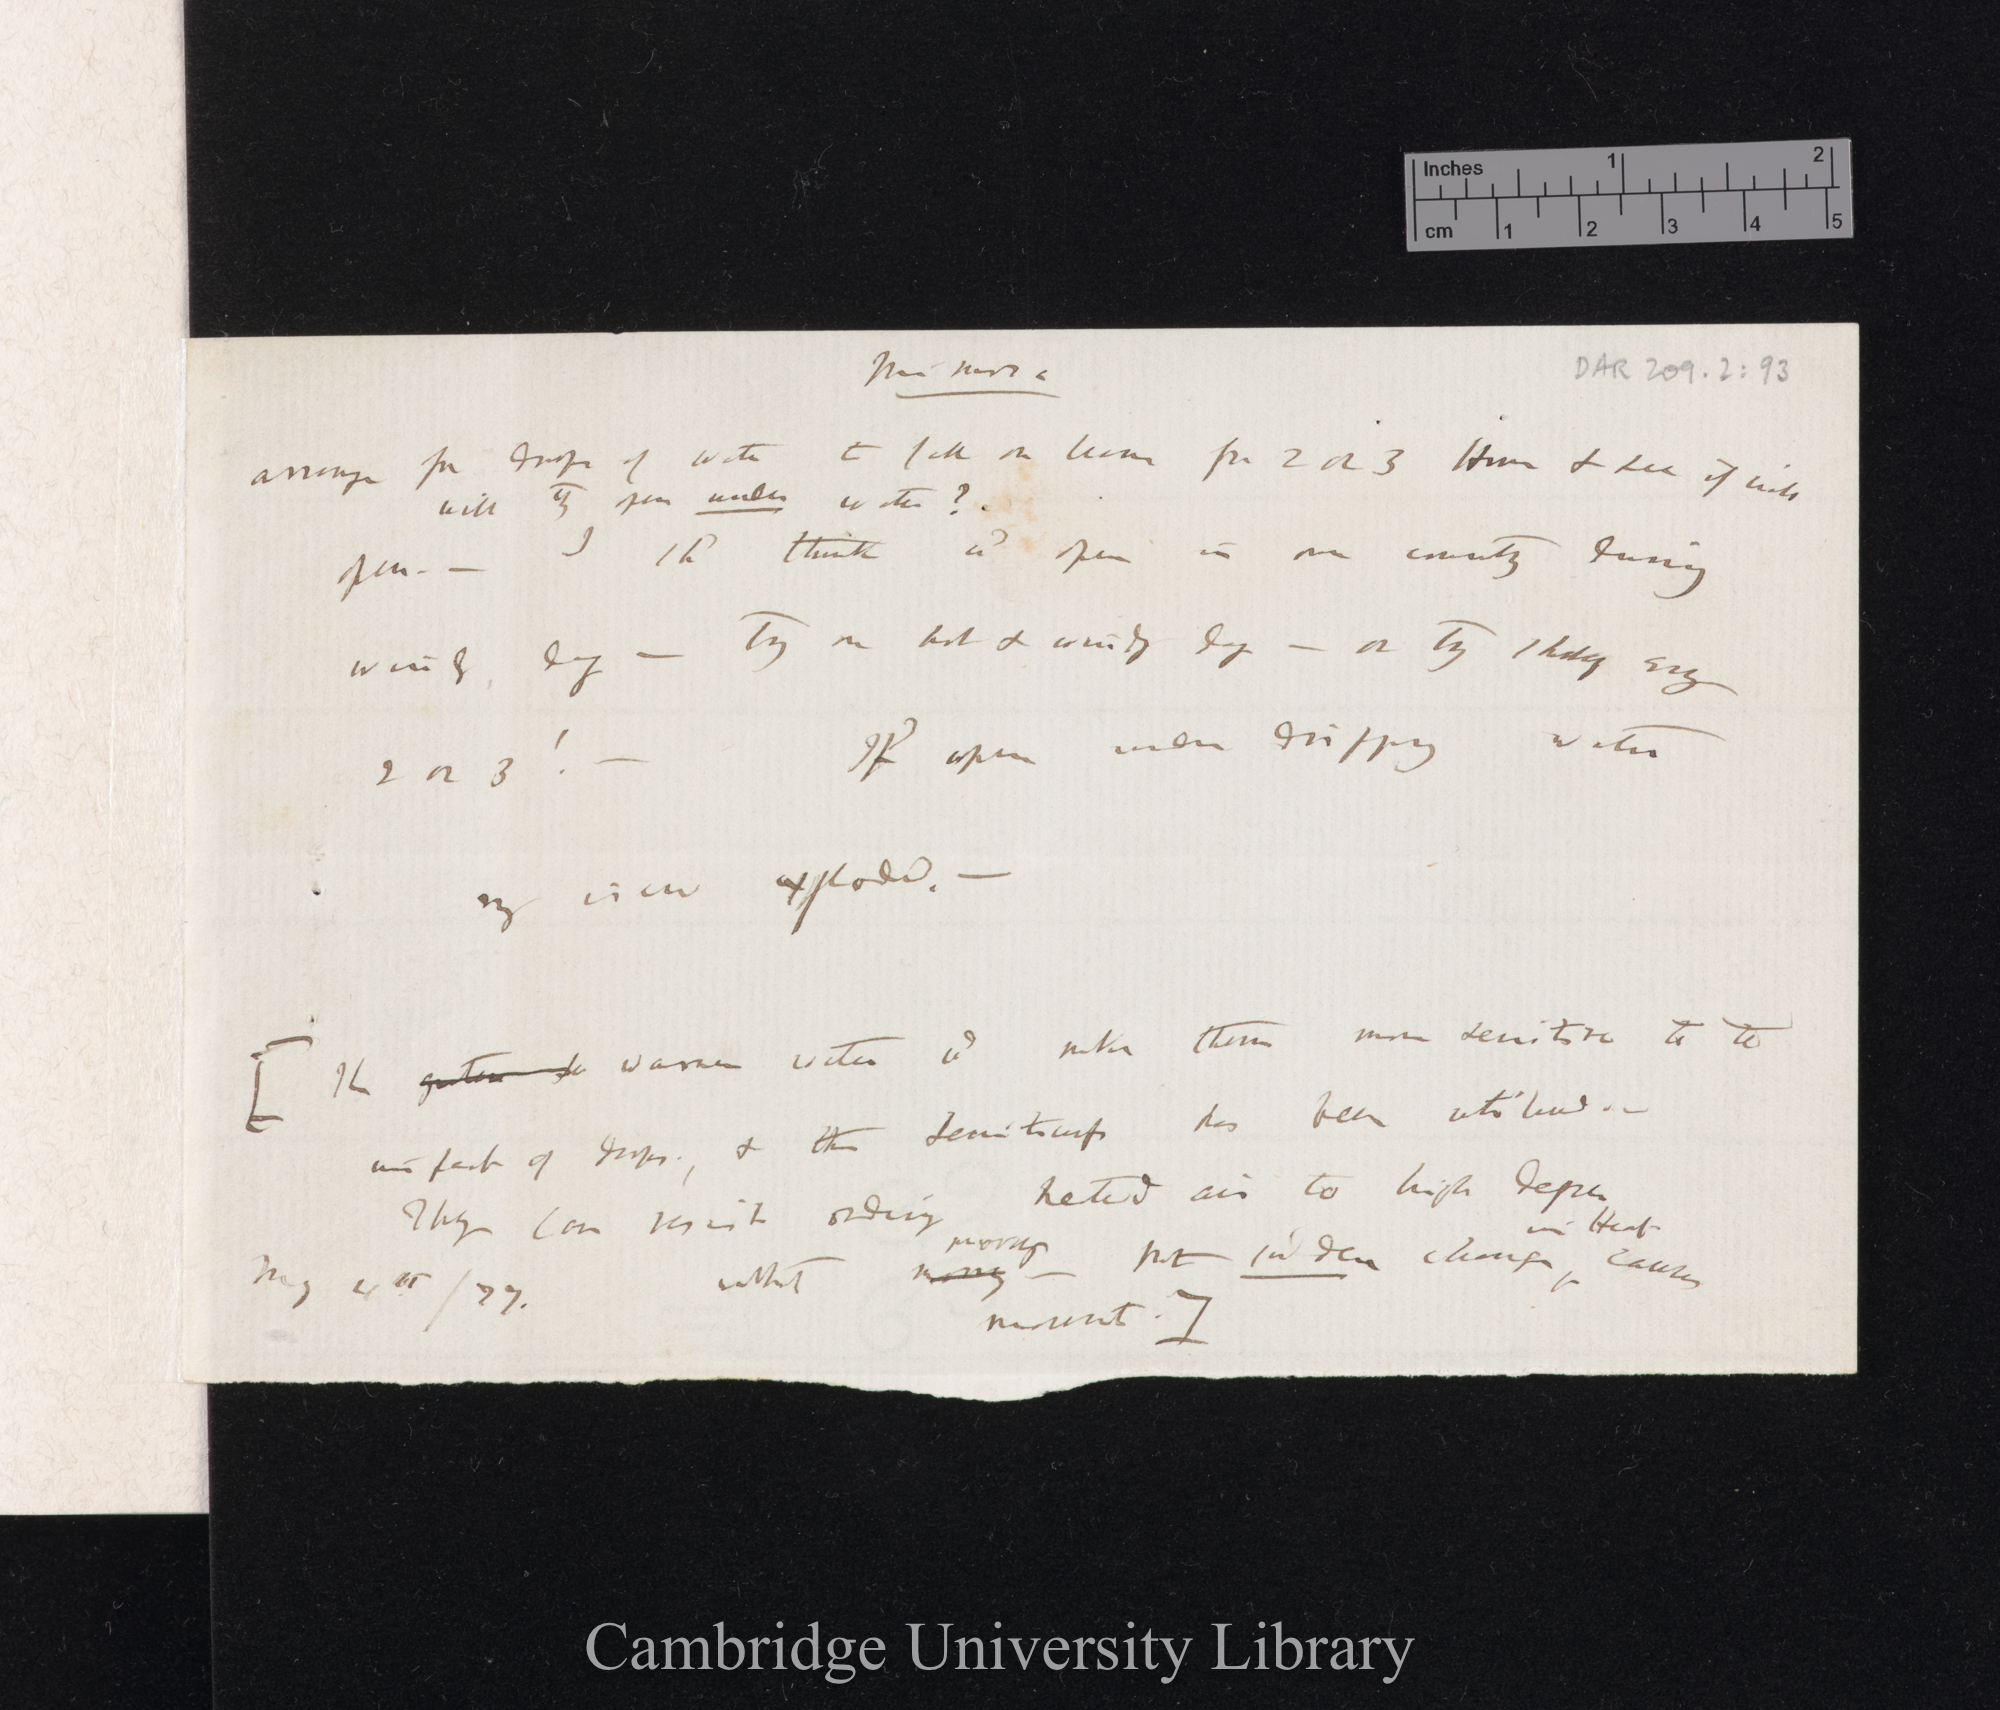 Inches 1 2
cm 1 2 3 4 5
Mimosa
DAR 209.2:93
arrange for drops of water to fall on leaves for 2 or 3 Hours & see if will
will they open under water?
open. — I shd think wd open in our country during
windy day — Try on hot & windy day — or try shaky every
2 or 3'. — If open under dripping water
my view exploded. —
[The warmer water wd make them more sensitive to the
of drops, & this sensitiveness has been utilised. —
They can resist ordinary heated air to high degree
in Heat
moving
May 4th/77. without moving — but sudden change, causes
movement.]
Cambridge University Library